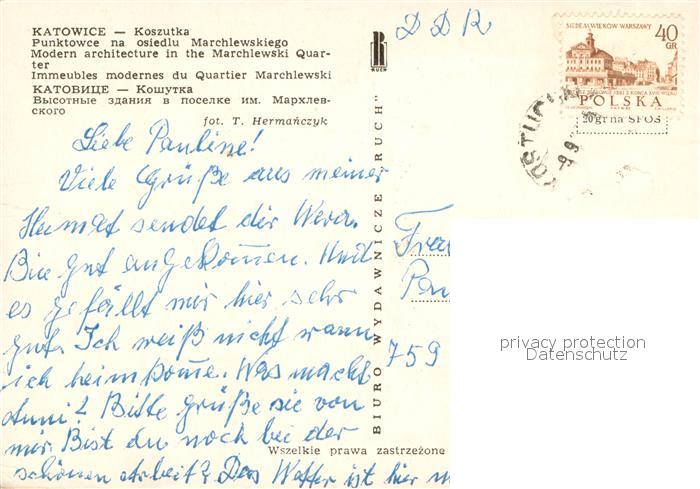 KATOWICE — Koszutka
Punktowce na osiedlu Marchlewskiego
Modern architecture in the Marchlewski Quar-
ter
Immeubles modernes du Quartier Marchlewski
КАТОВИЦЕ — Кошутка
Высотные здания в поселке им. Мархлев-
ского
fot. T. Hermańczyk
Liebe Pauline!
Viele Grüße aus meiner
Heimat sendet dir Wera.
Bin gut angekommen. Und
es gefällt mir hier sehr
gut. Ich weiß nicht wann
ich heimkomme. Was macht
Anni? Bitte grüße sie von
mir. Bist du noch bei der
schönen Arbeit? Das Wetter ist hier
RUCH
BIURO WYDAWNICZE „RUCH"
Wszelkie prawa zastrzeżone
DDR
SIEDEM WIEKÓW WARSZAWY
40
GR
POLSKA
20 gr na SFOS
Frau
Pau
759
privacy protection
Datenschutz